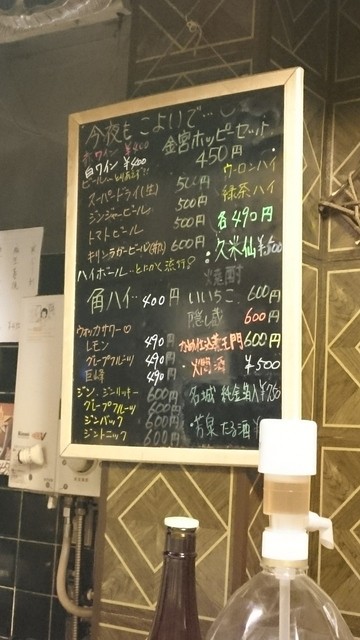 今夜もこよいで…
赤ワイン ¥400
白ワイン ¥400
金宮ホッピーセット
450円
スーパードライ(生) 500円
ジンジャービール 500円
トマトビール 500円
キリンラガービール 600円
ハイボール
角ハイ… 400円
ウォッカサワー♡
レモン 490円
グレープフルーツ 490円
巨峰 490円
ジン
ジンリッキー 600円
グレープフルーツ 600円
ジンバック 600円
ジントニック 600円
ウーロンハイ
緑茶ハイ
各490円
久米仙 ¥500
焼酎
いいちこ 600円
隠し蔵 600円
600円
燗酒 ¥500
名城 純金箔入 ¥750
たる酒